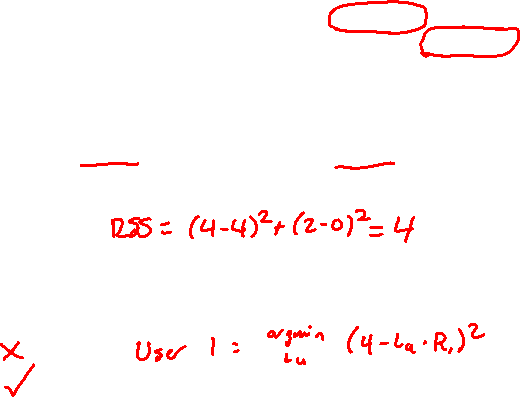 RSS = (4-4)² + (2-0)² = 4
User 1 = argmin (4 - Lu · R₁)²
Lu